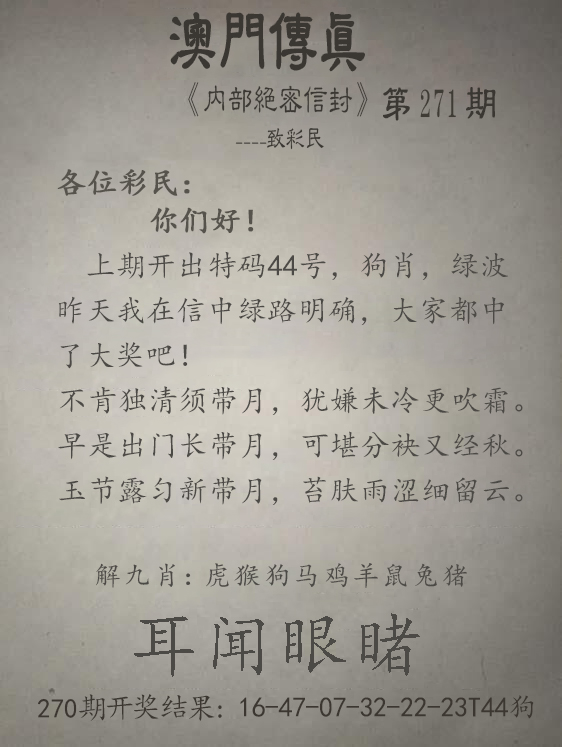 澳門傳眞
《内部絕密信封》第271期
----致彩民
各位彩民：
你们好！
上期开出特码44号，狗肖，绿波
昨天我在信中绿路明确，大家都中
了大奖吧！
不肯独清须带月，犹嫌未冷更吹霜。
早是出门长带月，可堪分袂又经秋。
玉节露匀新带月，苔肤雨涩细留云。
解九肖：虎猴狗马鸡羊鼠兔猪
耳闻眼睹
270期开奖结果：16-47-07-32-22-23T44狗